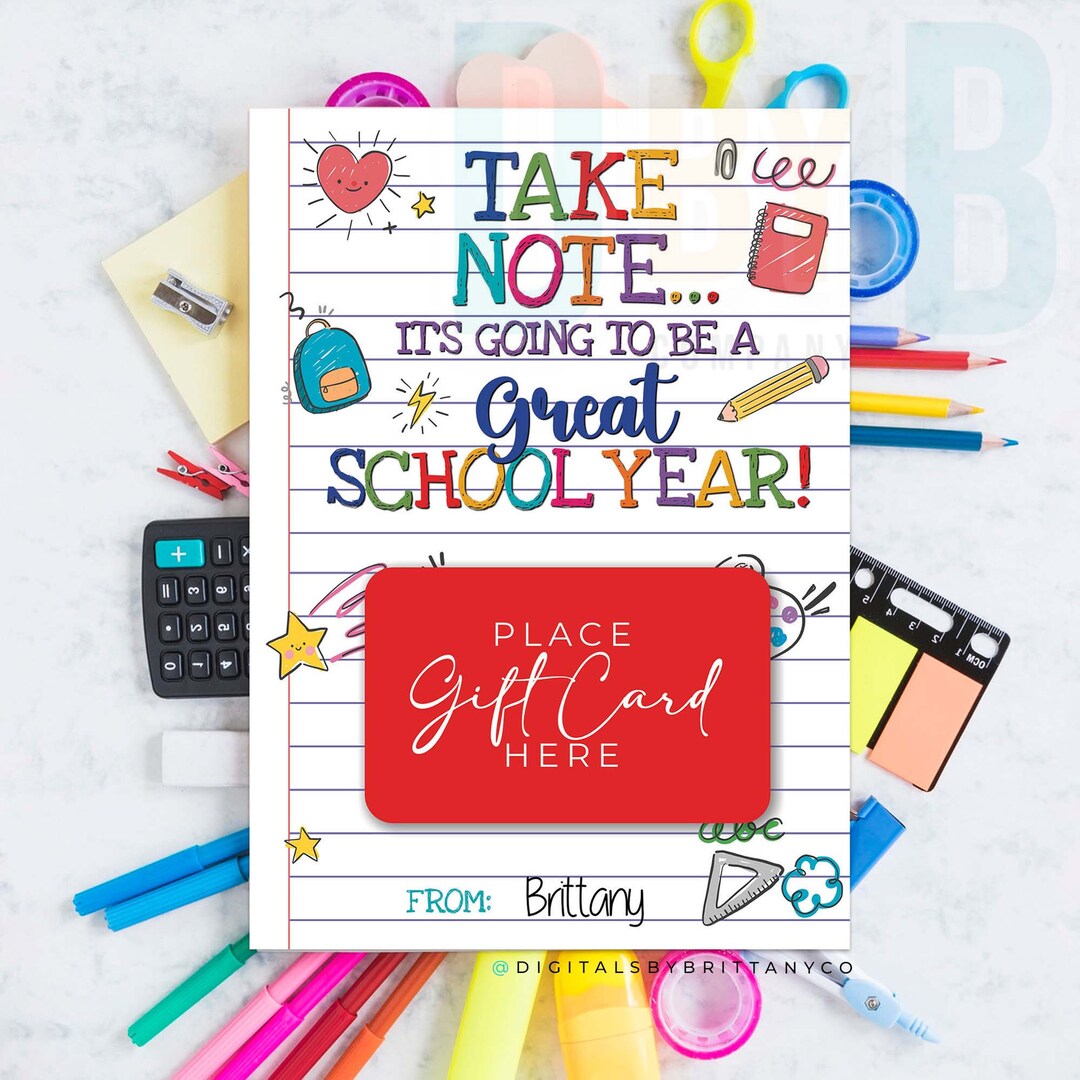 D BY B
COMPANY
TAKE
NOTE...
IT'S GOING TO BE A
Great
SCHOOL YEAR!
PLACE
Gift Card
HERE
abc
FROM: Brittany
@DIGITALSBYBRITTANYCO